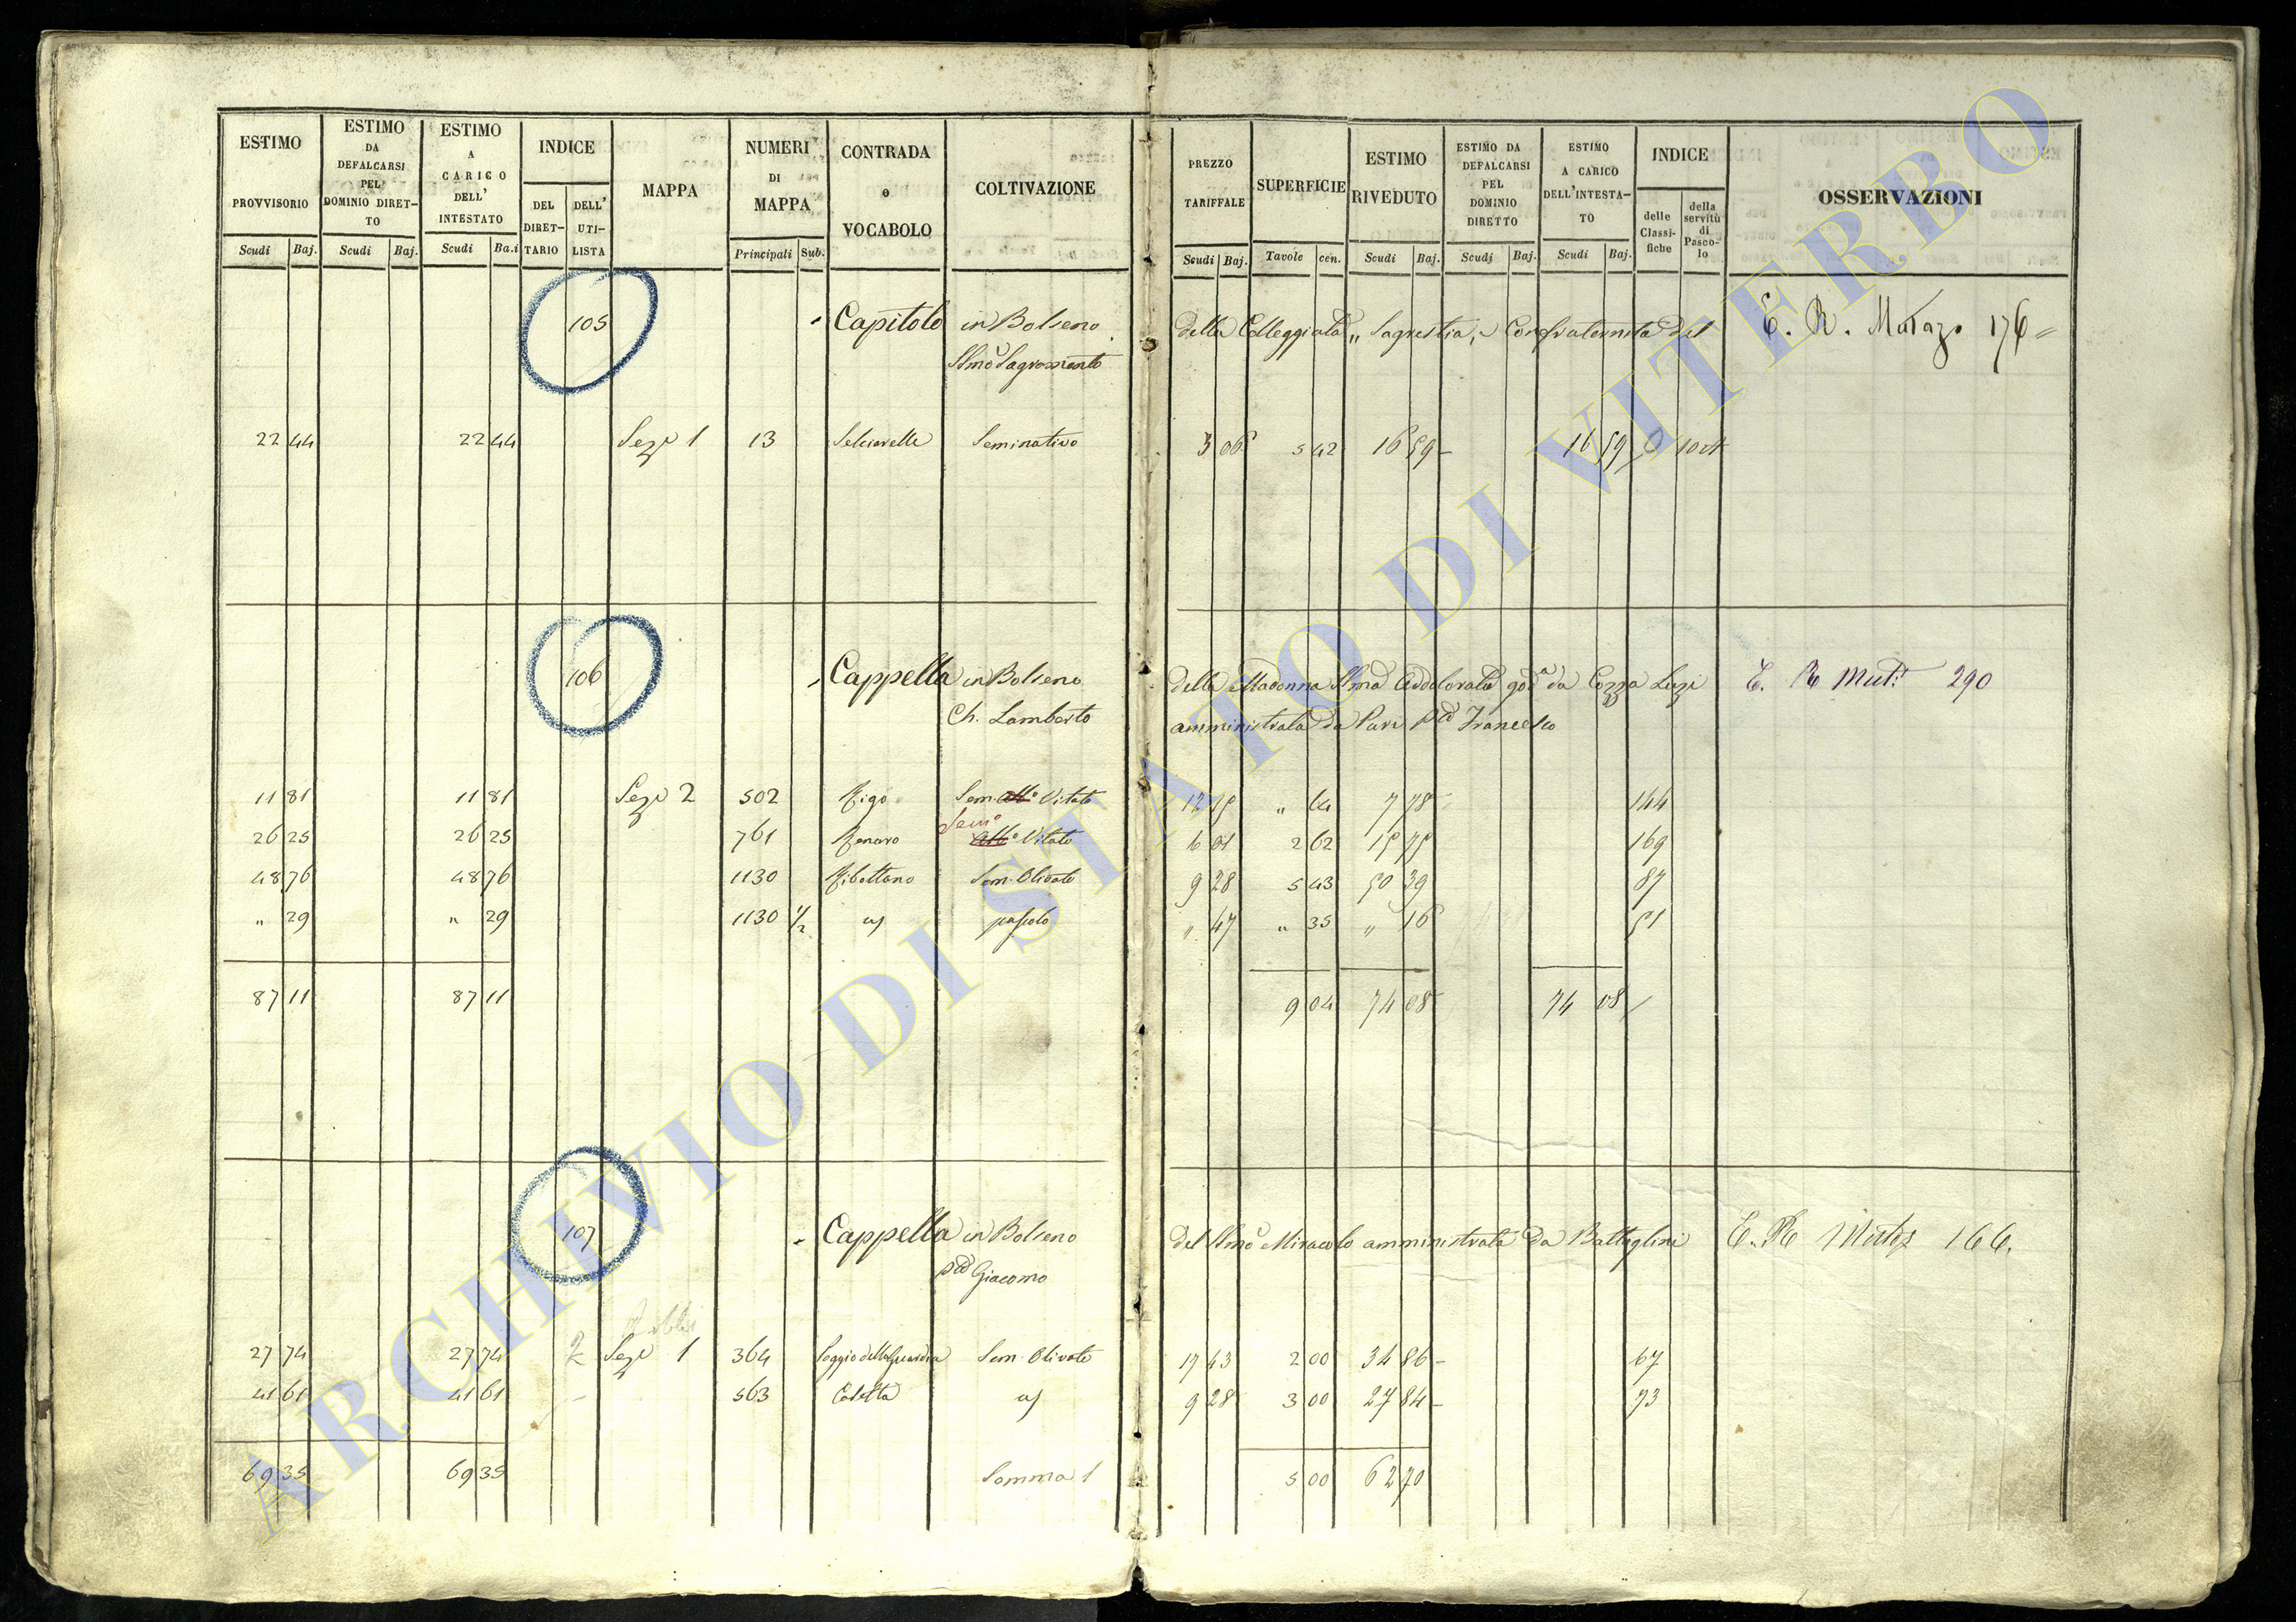 ESTIMO PROVVISORIO Scudi Baj.
ESTIMO DA DEFALCARSI PEL DOMINIO DIRETTO Scudi Baj.
ESTIMO A CARICO DELL' INTESTATO Scudi Ba.i
INDICE DEL DIRETTARIO DELL' UTILISTA
MAPPA
NUMERI DI MAPPA Principali Sub.
CONTRADA o VOCABOLO
COLTIVAZIONE
PREZZO TARIFFALE Scudi Baj.
SUPERFICIE Tavole cen.
ESTIMO RIVEDUTO Scudi Baj.
ESTIMO DA DEFALCARSI PEL DOMINIO DIRETTO Scudi Baj.
ESTIMO A CARICO DELL'INTESTATO Scudi Baj.
INDICE delle Classifiche della servitù di Pascolo
OSSERVAZIONI
105 Capitolo in Bolseno della Colleggiata „ Sagrestia, e Confraternita del E. R. 176
Ssmo Sagramento
22 44 22 44 Seze 1 13 Selciarelle Seminativo 3 06 5 42 16 59 16 59
106 Cappella in Bolseno della Madonna Ssma Addolorata god.a da Cozza Luzi E. R Mut. 290
Ch. Lamberto amministrata da Pari pio Francesco
11 81 11 81 Seze 2 502 Rigo Sem. Vitato 12 15 „ 64 7 78 144
Semo
26 25 26 25 761 Renaro Vitato 6 01 2 62 15 75 169
48 76 48 76 1130 Ribottano Sem. Olivato 9 28 5 43 50 39 87
„ 29 „ 29 1130 1/2 pascolo „ 47 „ 35 „ 16 51
87 11 87 11 9 04 74 08 74 08
107 Cappella in Bolseno del Ssmo Miracolo amministrata da Battaglini E. R 166.
Giacomo
27 74 27 74 Seze 1 364 Poggio della Guardia Sem. Olivato 17 43 2 00 34 86 67
41 61 41 61 563 Casetta 9 28 3 00 27 84 73
69 35 69 35 Somma 5 00 62 70
ARCHIVIO DI STATO DI VITERBO